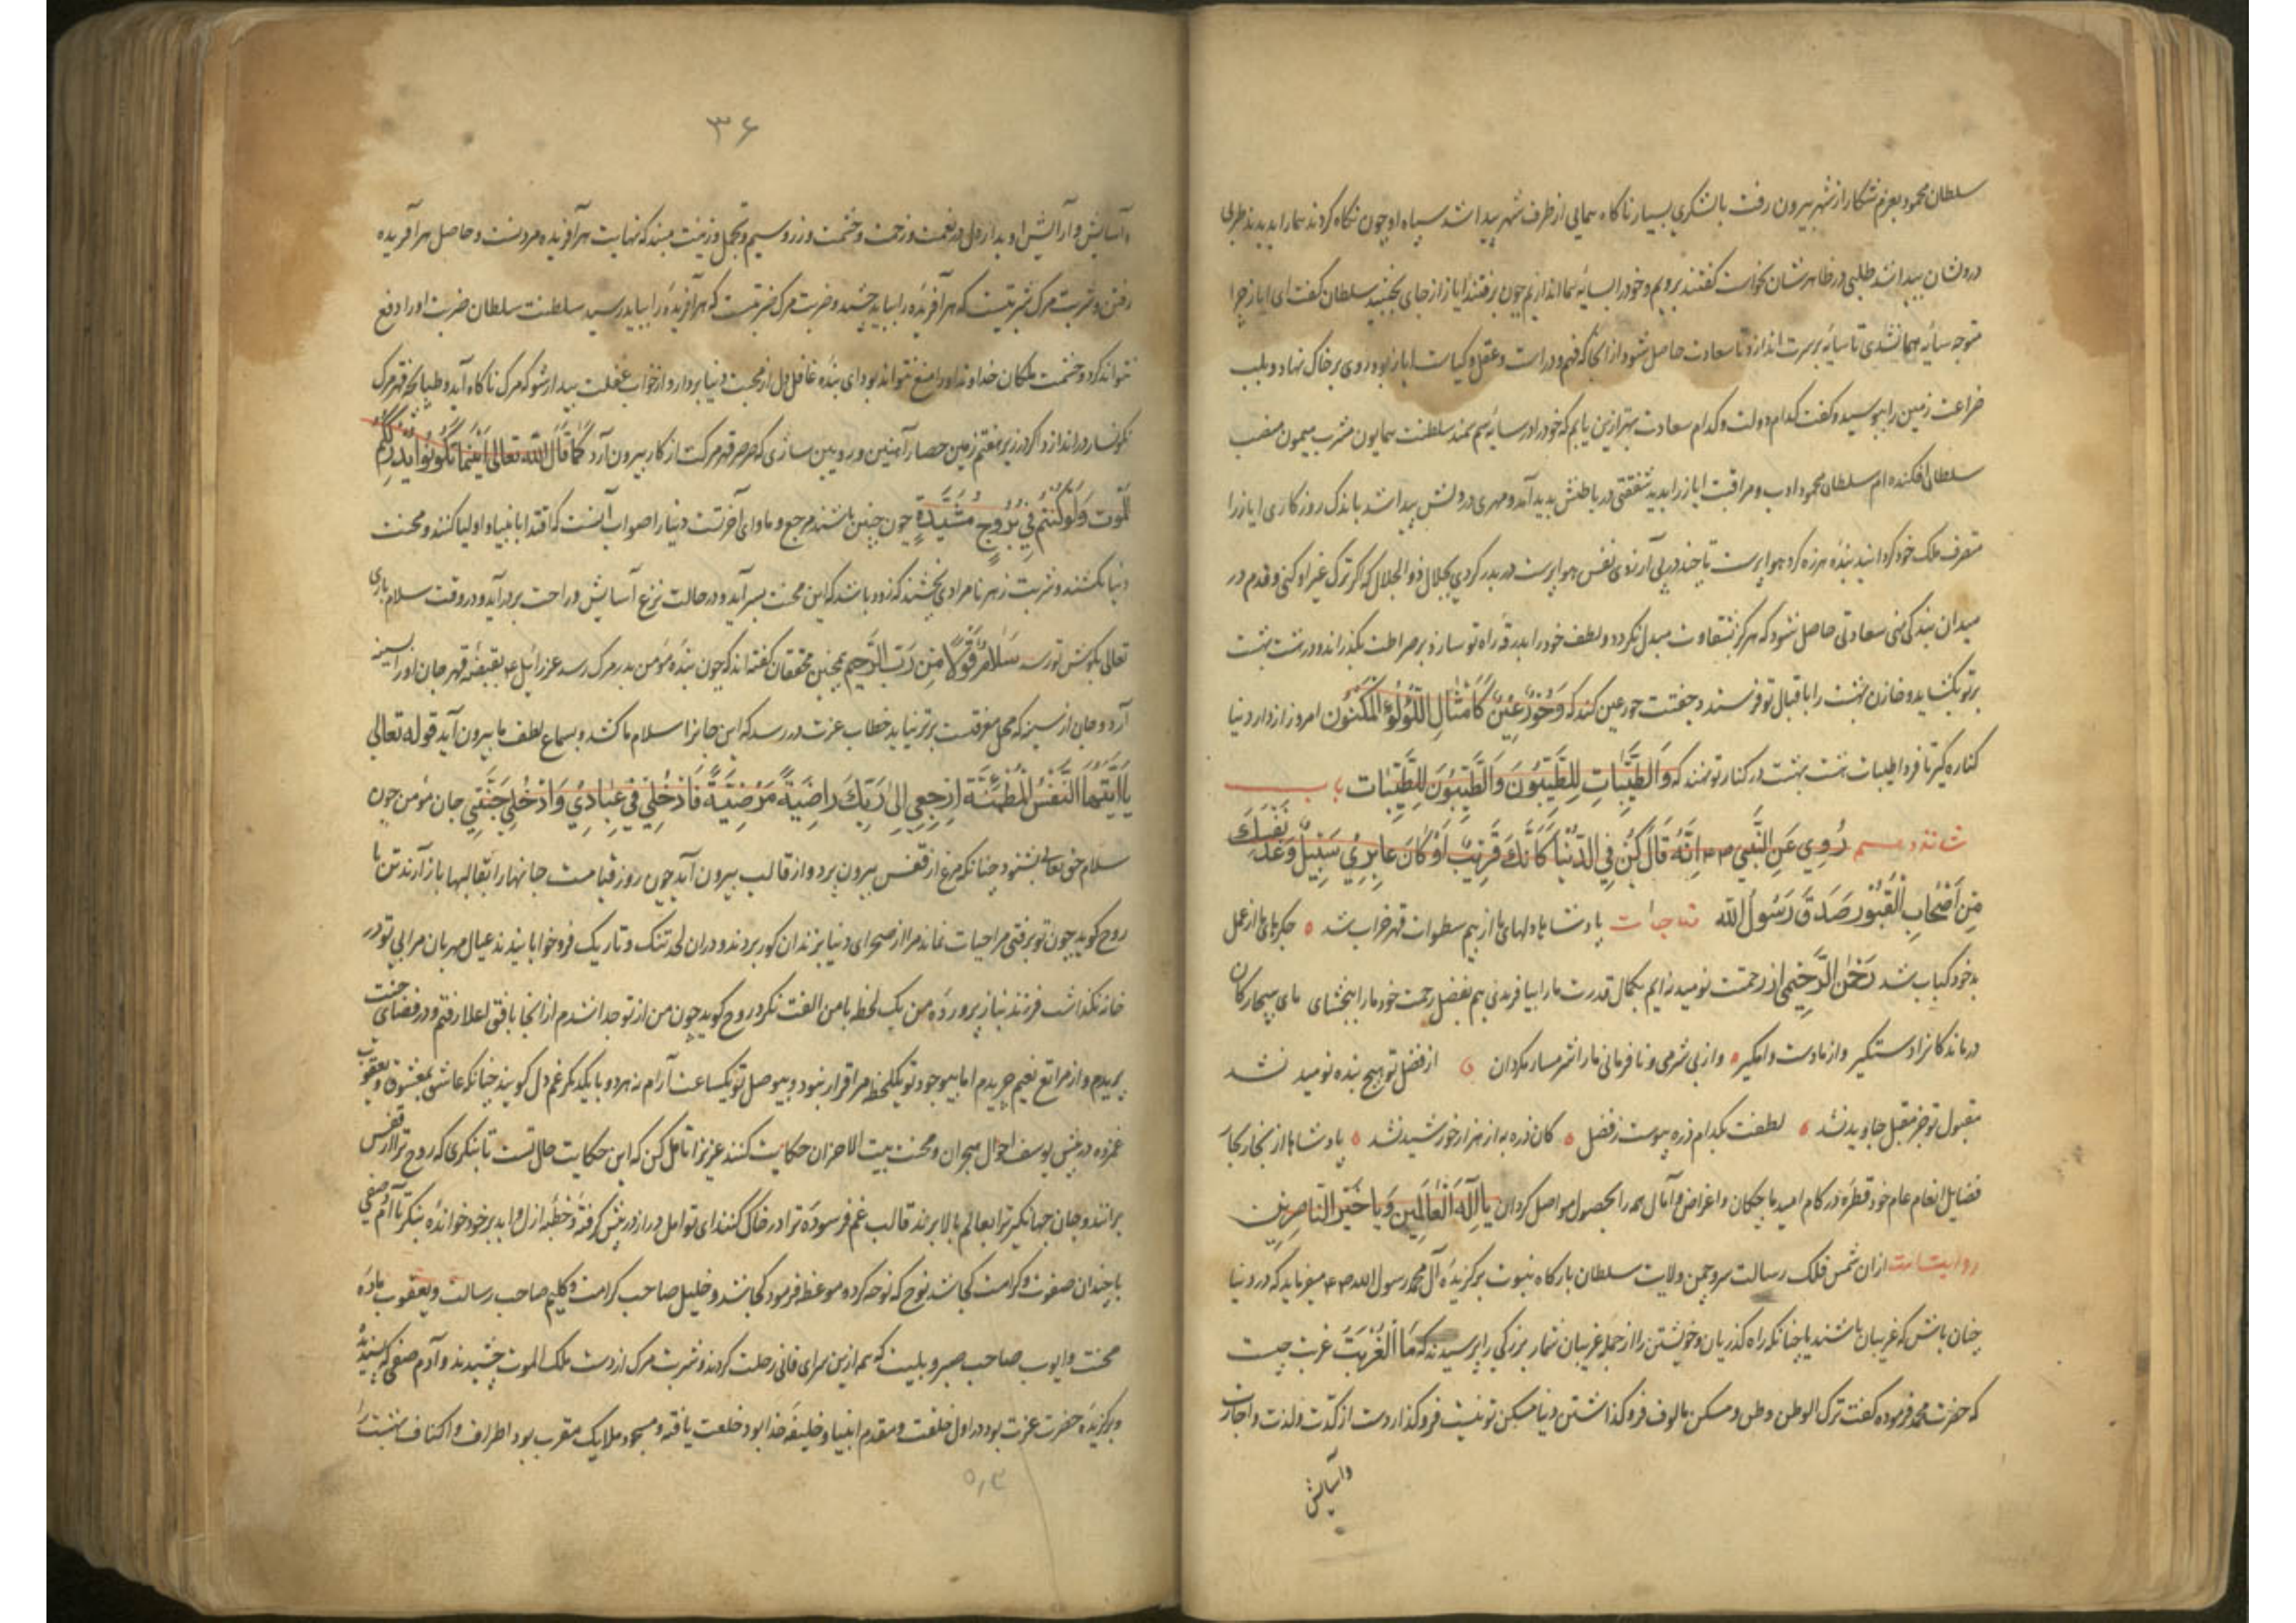 سلطان محمود بعزم شکار از شهر بیرون رفت با لشکری بسیار ناکاه همایی از طرف شهر پیدا شد سپاه او چون نکاه کردند همارا بدیدند طربی
در وشان پیدا شد طلبی در ظاهرشان نخواست کفتند برویم و خود را بسایهٔ هما اندازیم چون برفتند ایاز از جای نجنبید سلطان کفت ای ایاز چرا
متوجه سایهٔ هما نشدی تا سایه بر سرت اندازد تا سعادت حاصل شود از انجا که فهم و دراست و عقل و کیاست ایاز بود روی بر خاک نهاد و بلب
ضراعت زمین را ببوسید و کفت کدام دولت و کدام سعادت بهتر ازین یابم که خود را در سایهٔ سم سمند سلطنت همایون مشرب میمون منصب
سلطان افکنده ام سلطان محمود ادب و مراقبت ایاز را بدید شفقتی در باطنش پدید آمد و مهری در ولش پیدا شد باندک روزکاری ایاز را
متصرف ملک خود کردانید بندهٔ هرزه کرد هوا پرست تا چند در پی آرزوی نفس هوا پرست در بدر کردی بجلال ذو الجلال که کر ترک غیر او کنی و قدم در
میدان بندکی نهی سعادتی حاصل شود که هرکز بشقاوت مبدل نکردد و لطف خود را بدرقهٔ راه تو سازد و بر صراطت بکذراند و در هشت بهشت
بر تو بکشاید و خازن بهشت را باقبال تو فرستد و جفتت حور عین کند که وَحُورٌ عِینٌ کَاَمْثَالِ اللُّؤْلُؤِ الْمَکْنُون امروز از دار دنیا
کناره کیر تا فردا طیبات هشت بهشت در کنار تو نهند که وَالطَّیِّبَاتِ لِلطَّیِّبُونَ وَالطَّیِّبُونَ لِلطَّیِّبَات باب
شانزدهم رُوِیَ عَنِ النَّبِی صم اِنَّهُ قَالَ کُنْ فِی الدُّنْیَا کَاَنَّکَ غَرِیبٌ اَوْ کَانَ عَابِرِی سَبِیلٍ وَعُدَّ نَفْسَکَ
مِنْ اَصْحَابِ الْقُبُور صَدَقَ رَسُولُ الله مناجات پادشاها دلهای ما از بیم سطوات قهر خراب شد جکرهای ما از عمل
بد خود کباب شد رحمن الرحیمی از رحمت نومید نه ایم بکمال قدرت ما را بیافریدی هم بفضل رحمت خود ما را ببخشای مای بیچارکان
درماندکانرا دستکیر و از ما دست وا مکیر و از بی شرمی و نافرمانی ما را شرمسار مکردان از فضل تو هیچ بنده نومید نشد
مقبول تو جز مقبل جاوید نشد لطفت بکدام ذره پیوست ز فضل کان ذره به از هزار خورشید نشد پادشاها از بحار
فضایل انعام عام خود قطرهٔ در کام امید ما چکان و اغراض و آمال همه را بحصول مواصل کردان یَا اِلٰهَ الْعَالَمِینَ وَیَا خَیْرَ النَّاصِرِین
روایتست از ان شمس فلک رسالت سرو چمن ولایت سلطان بارکاه نبوت برکزیدهٔ آل محمد رسول الله صم میفرماید که در دنیا
چنان باش که غریبان باشند یا چنانکه راه کذریان و خویشتن را از جمله غریبان شمار بزرکی را پرسیدند که مَا الْغُرْبَت غربت چیست
که حضرت محمد فرموده کفت ترک الوطن وطن و مسکن مالوف فروکذاشتن دنیا مسکن تو نیست فروکذار دست از
وآسایش
۳۶
وآسایش و آرایش او بدار دل در نعمت و زحمت و حشمت و زر و سیم و تجمل و زینت مبند که نهایت هر آفریده مردنست و حاصل هر آفریده
رفتن و شربت مرک شربتیست که هر آفریده را بباید چشید و ضربت مرک ضربتیست که هر آفریده را بباید رسید سلطنت سلطان ضربت او را دفع
نتواند کرد و حشمت ملکان خداوند او را منع نتواند بود ای بندهٔ غافل دل از محبت دنیا بردار و از خواب غفلت بیدار شو که مرک ناکاه آید و طپانچه قهر مرک
نکونسار در اندازد اکر در زیر هفتم زمین حصار آهنین و رویین سازی که صرصر قهر مرکت از کار بیرون آرد کَمَا قَالَ اللهُ تَعَالٰی اَیْنَمَا تَکُونُوا یُدْرِکْکُمُ
الْمَوْت وَلَوْ کُنْتُمْ فِی بُرُوجٍ مُشَیَّدَةٍ چون چنین باشند مرجع و ماوای آخرتست دنیا را صواب آنست که اقتدا بانبیا و اولیا کنند و محنت
دنیا بکشند و شربت زهر نامرادی بچشند که زود باشد که این محنت بسر آید و در حالت نزع آسایش و راحت بر در آید و در وقت سلام باری
تعالی بکوش تو رسد سَلَامٌ قَوْلًا مِنْ رَبِّ الرَّحِیم همچنین محققان کفته اند که چون بندهٔ مؤمن بدر مرک رسد عزرائیل ع بقبضهٔ قهر جان او را از سینه
آرد و جان از سینه که محل معرفتست برتر نیاید خطاب عزت در رسد که این جانرا سلام ما کشد و بسماع لطف ما بیرون آید قوله تعالی
یَا اَیَّتُهَا النَّفْسُ الْمُطْمَئِنَّة اِرْجِعِی اِلٰی رَبِّکَ رَاضِیَةً مَرْضِیَّةً فَادْخُلِی فِی عِبَادِی وَادْخُلِی جَنَّتِی جان مؤمن چون
سلام حق تعالی بشنود چنانکه مرغ از قفس بیرون پرد و از قالب بیرون آید چون روز قیامت جانها را بقالبها باز آرند تن با
روح کوید چون تو برفتی مرا حیات نماند مرا از صحرای دنیا بزندان کور بردند و در ان لحد تنک و تاریک فرو خوابانیدند عیال مهربان مرا بی تو در
خانه نکذاشت فرزند نیاز پروردهٔ من یک لحظه با من الفت نکرد روح کوید چون من از تو جدا شدم از انجا بافق اعلا رفتم و در فضای جنت
پریدم و از مراتع نعیم چریدم اما بی وجود تو یکلحظه مرا قرار نبود و بی وصل تو یکساعت آرام نه هر دو با یکدیکر غم دل کویند چنانکه عاشق بمعشوق و یعقوب
غمزده در پیش یوسف احوال هجران و محنت بیت الاحزان حکایت کنند عزیزا تامل کن که این حکایت حال تست تا بنکری که روح ترا از قفس
برانند و جان جهانکیر ترا بعالم بالا برند قالب غم فرسودهٔ ترا در خاک کنند ای تو امل دراز در پیش کرفته و خطبهٔ ازل و ابد بر خود خوانده بنکر تا آدم صفی
با چندان صفوت و کرامت کجا شد نوح که نوحه کرد و موعظه فرمود کجا شد و خلیل صاحب کرامت و کلیم صاحب رسالت و یعقوب مادهٔ
محنت و ایوب صاحب صبر و بلیت که هم ازین سرای فانی رحلت کردند و شربت مرک از دست ملک الموت چشیدند و آدم صفی که پسندیدهٔ
و برکزیدهٔ حضرت عزت بود در اول خلقت و مقدم انبیا و خلیفهٔ خدا بود خلعت یافته و مسجود ملایک مقرب بود اطراف و اکناف بهشت را